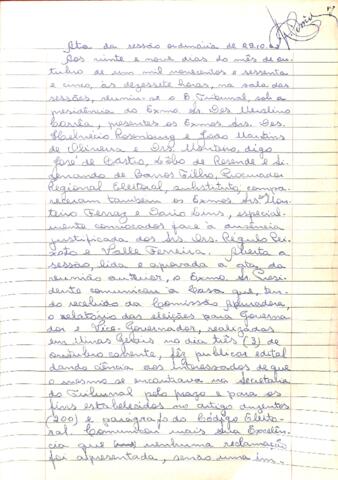 Ata da sessão ordinária de 29.10.65
Aos vinte e nove dias do mês de ou-
tubro de um mil novecentos e sessenta
e cinco, às dezessete horas, na sala das
sessões, reuniu-se o E. Tribunal, sob a
presidência do Exmo. Sr. Des. Merolino
Corrêa, presentes os Exmos. Srs. Des.
Helvécio Rosenburg e João Martins
de Oliveira e Drs. Monteiro, digo
José de Castro, Lôbo de Resende e
Fernando de Barros Filho, Procurador
Regional Eleitoral, substituto, compa-
receram também os Exmos. Srs. Mon-
teiro Ferraz e Dario Lins, especial-
mente convocados face à ausência
justificada dos Srs. Drs. Régulo Pei-
xoto e Valle Ferreira. Aberta a
sessão, lida e aprovada a ata da
reunião anterior, o Exmo. Sr. Presi-
dente comunicou à Casa que, ten-
do recebido da Comissão Apuradora,
o relatório das eleições para Governa-
dor e Vice-Governador, realizadas
em Minas Gerais no dia três (3) de
outubro corrente, fêz publicar edital
dando ciência aos interessados de que
o mesmo se encontrava na Secretaria
do Tribunal pelo prazo e para os
fins estabelecidos no artigo duzentos
(200) e parágrafo do Código Eleito-
ral. Comunicou mais sua Excelên-
cia que nenhuma reclamação
foi apresentada, sendo uma im-